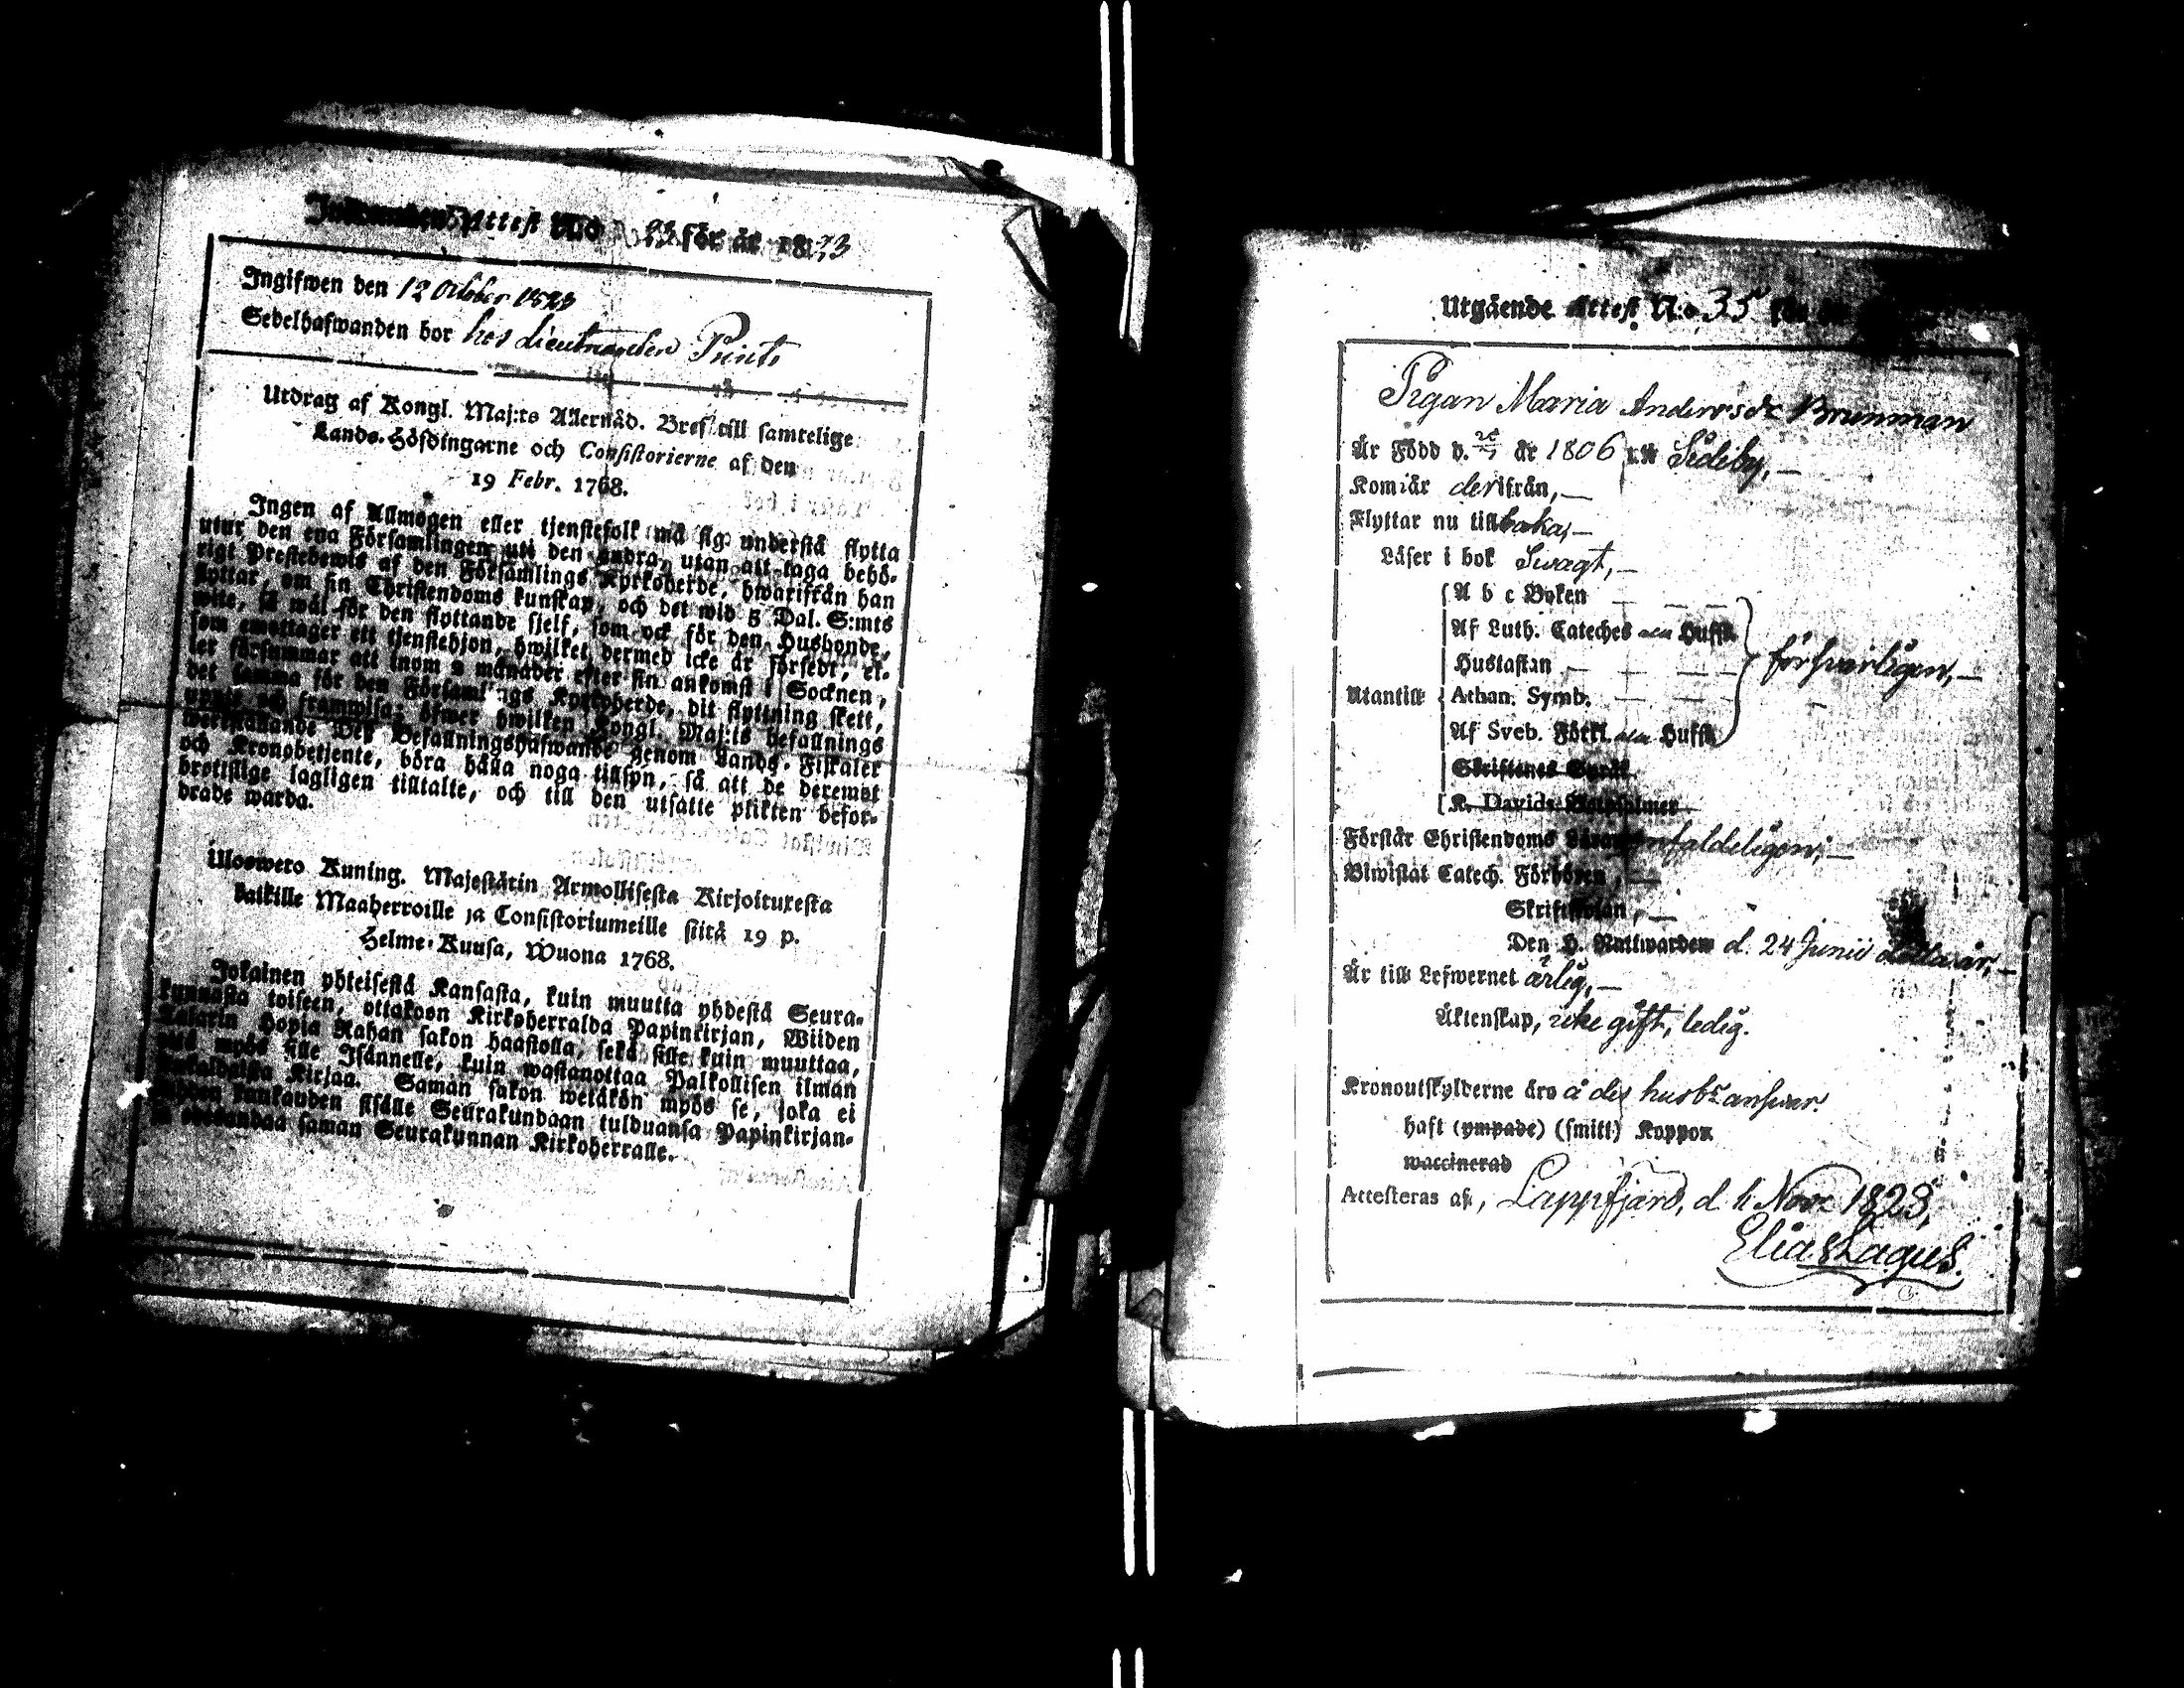 Attest N:o 23 för år 1823
Ingifwen den 12 October 1823
Sedelhafwanden bor hos Lieutnanten
Utdrag af Kongl. Maj:ts Allernåd. Bref till samtelige
Lands-Höfdingarne och Consistorierne af den
19 Febr. 1768.
Ingen af Allmogen eller tjenstefolk må sig understå flytta
utur den ena Församlingen uti den andra, utan att taga behö-
rigt Prestebewis af den Församlings Kyrkoherde, hwarifrån han
flyttar, om sin Christendoms kunskap, och det wid 5 Dal. S:mts
wite, så wäl för den flyttande sjelf, som ock för den Husbonde,
som emottager ett tjenstehjon, hwilket dermed icke är försedt, el-
ler försummar att inom 2 månader efter sin ankomst i Socknen,
det samma för den Församlings Kyrkoherde, dit flyttning skett,
och framwisa; öfwer hwilken Kongl. Maj:ts befallnings
werkställande Des Befallningshafwande genom Lands-Fiskaler
och Kronobetjente, böra hålla noga tillsyn, så att de deremot
brottslige lagligen tilltalte, och till den utsatte plikten befor-
drade warda.
Uloswero Kuning. Majestätin Armollisesta Kirjoituxesta
kaikille Maaherroille ja Consistoriumeille siitä 19 p.
Helme-Kuusa, Wuona 1768.
Jokainen yhteisestä Kansasta, kuin muutta yhdestä Seura-
kunnasta toiseen, ottakoon Kirkoherralda Papinkirjan, Wiiden
Talarin Hopia Rahan sakon haastolla, sekä sille kuin muuttaa,
että myös sille Isännelle, kuin wastanottaa Palkollisen ilman
Kirjaa. Saman sakon wetäkön myös se, joka ei
kahden kuukauden sisälle Seurakundaan tulduansa Papinkirjan-
sa saman Seurakunnan Kirkoherralle.
Utgående Attest N:o 35 för år
Pigan Maria Andersdr Brunman
Är Född d. år 1806 i Sideby,
Kom är derifrån,
Flyttar nu tillbaka,
Läser i bok Swagt,
A b c Boken
Af Luth. Cateches Hufst.
Hustaflan
Utantill Athan. Symb.
försvarligen,
Af Sveb. Förkl. Hufst.
Skriftenes Språk
K. Davids Botpsalmer
Förstår Christendoms Läran enfaldeligen;
Biwistat Catech. Förhören,
Skriftskolan,
Den H. Nattwarden d. 24 Junii detta år,
Är till Lefwernet ärlig,
Äktenskap, icke gift, ledig.
Kronoutskylderne äro å des husb:s answar.
haft (ympade) (smitt) Koppor
waccinerad
Attesteras af, Lappfjärd, d. Nov. 1823,
Elias Lagus.